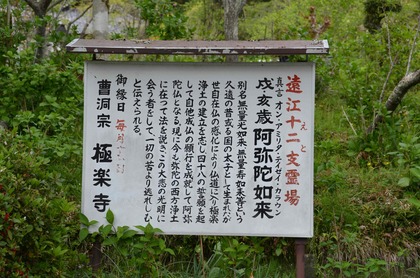 遠江十二支霊場
えと
真言 オン・アミリタ・テイゼイ・カラウン
戌亥歳 阿弥陀如来
別名、無量光如来、無量寿如来等という
久遠の昔或る国の太子として生まれたが
世自在仏の感化により仏道に入り極楽
浄土の建立を志し四十八の誓願を起
して自他成仏の願行を成就して阿弥
陀仏となる。現に今も弥陀の西方浄土
に在って法を説き、この大悲の光明に
会う者をして一切の苦より逃れしむ
と伝えられる。
御縁日 毎月
曹洞宗 極楽寺